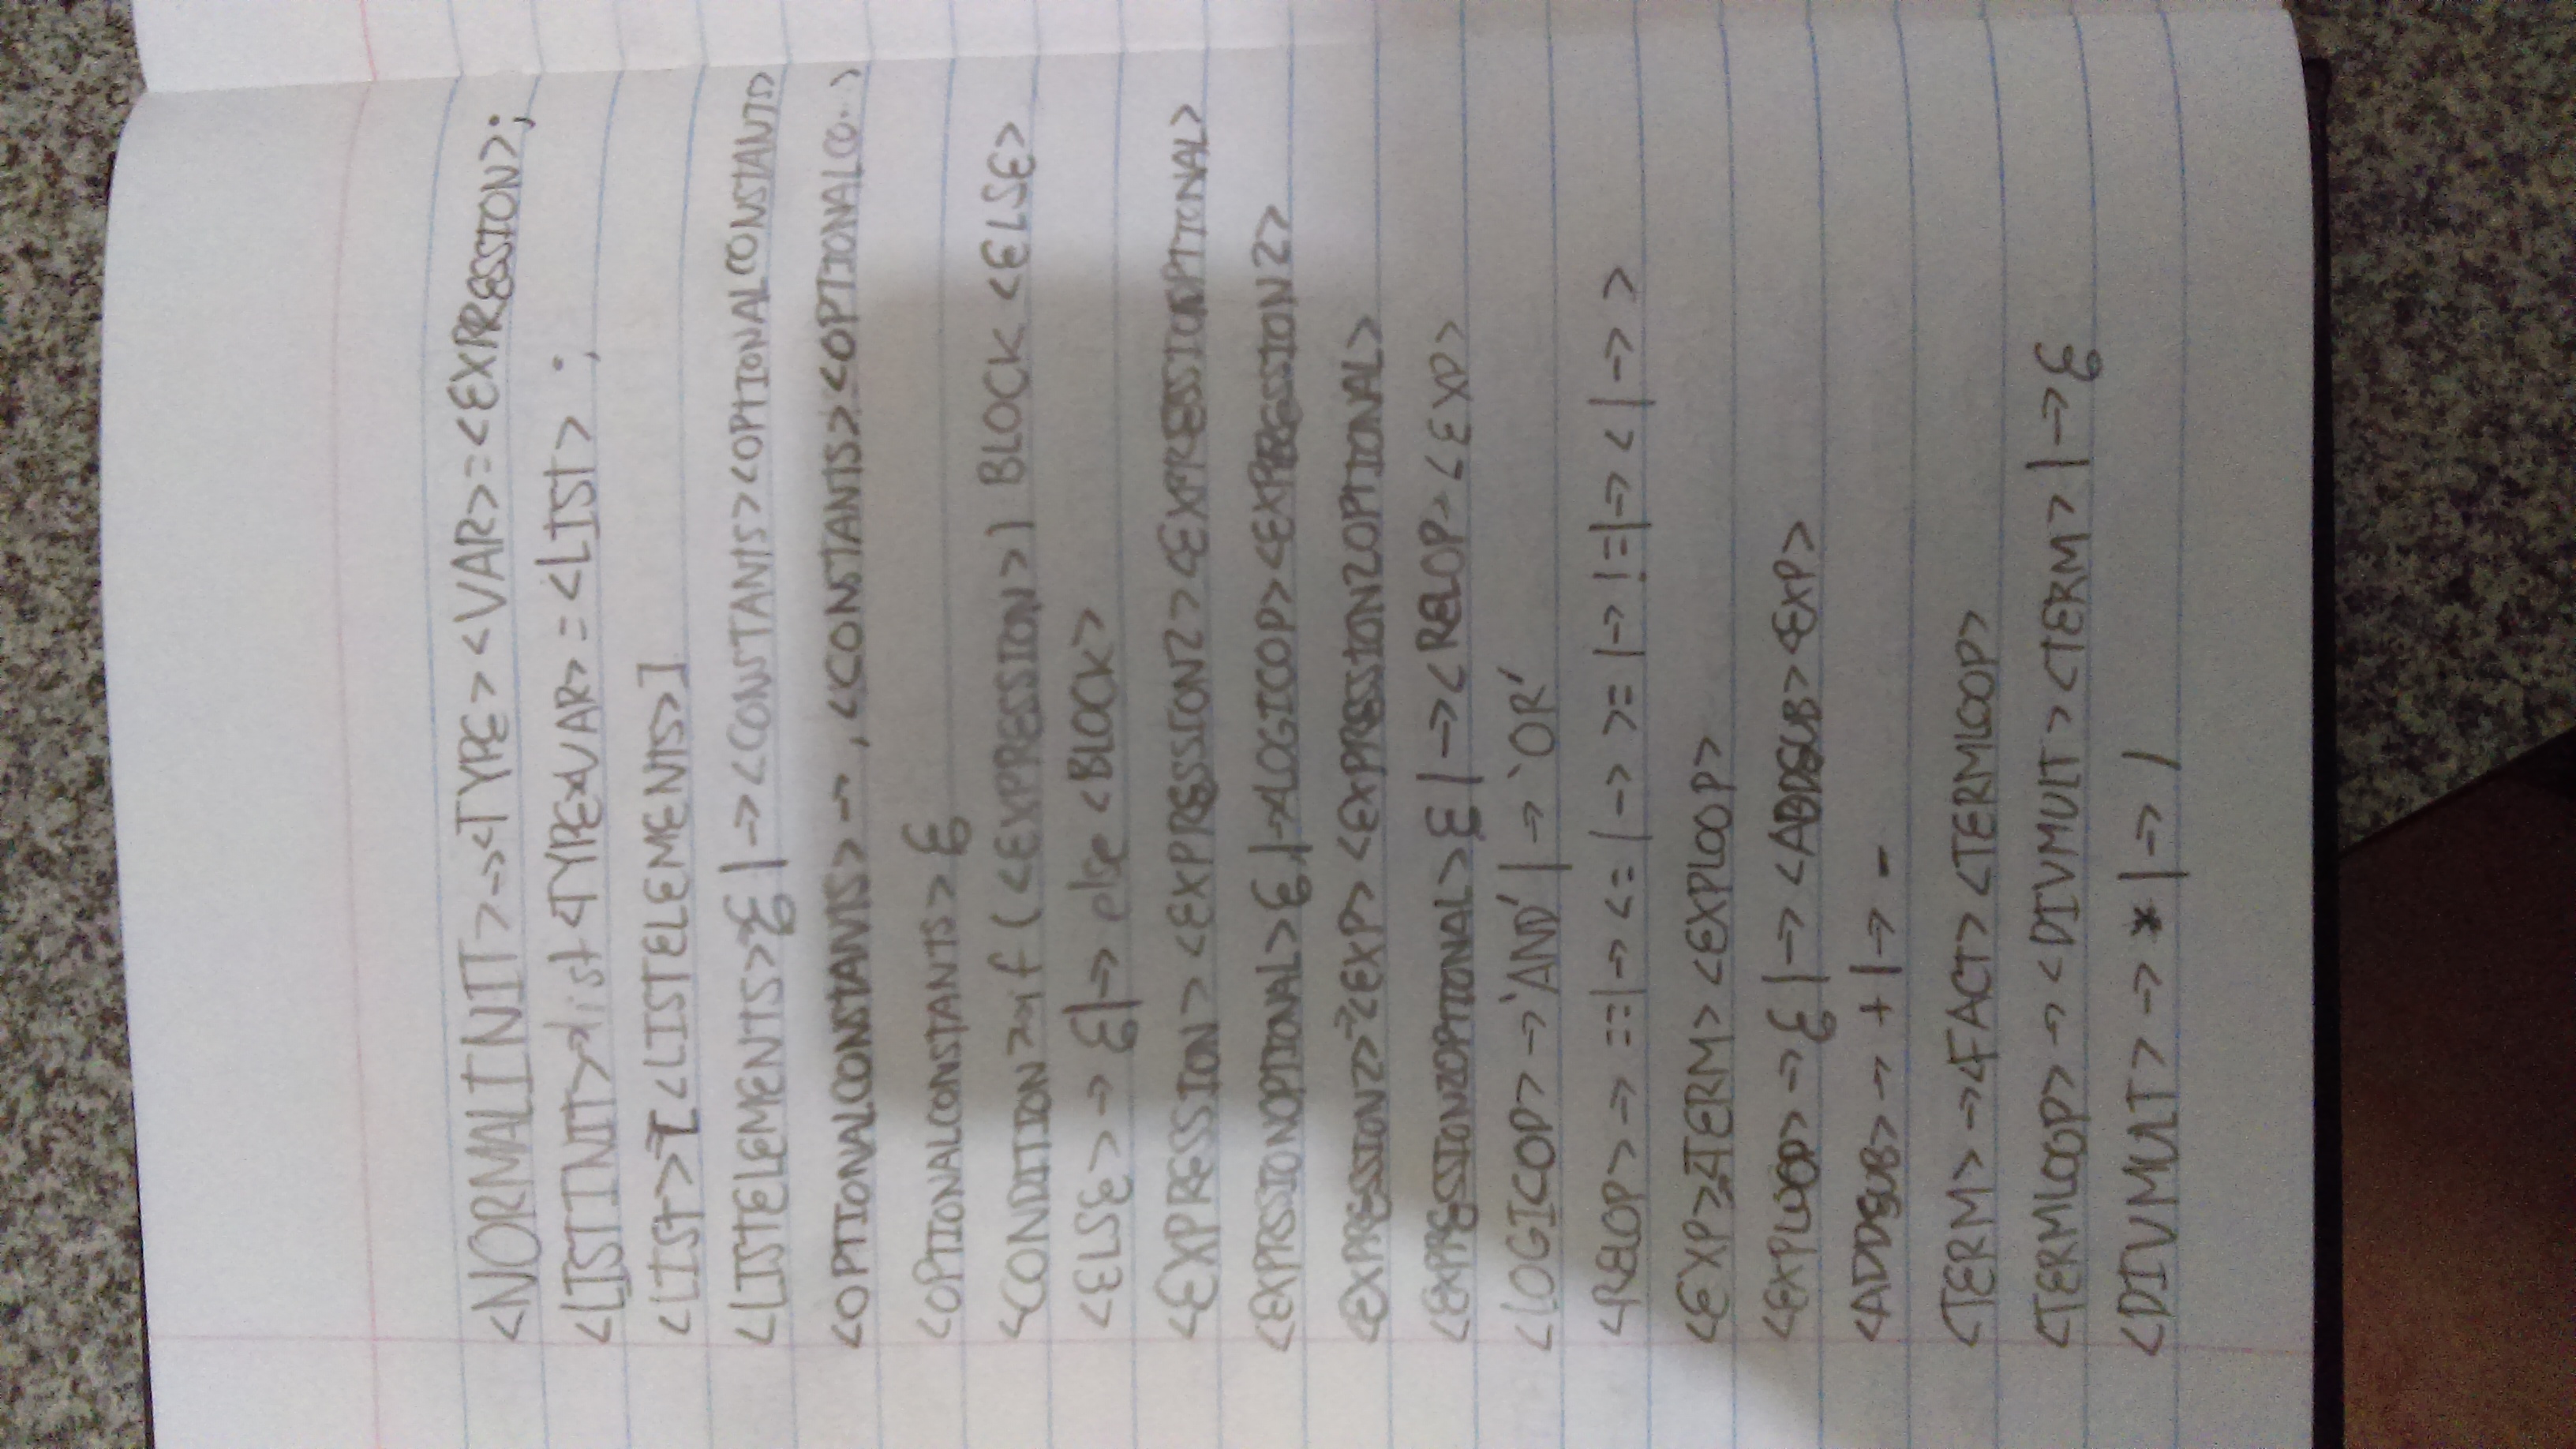 <NORMALINIT> → <TYPE> <VAR> = <EXPRESSION>;
<LISTINIT> → list <TYPE> <VAR> = <LIST> ;
<LIST> → [ <LISTELEMENTS> ]
<LISTELEMENTS> → ε | → <CONSTANTS> <OPTIONALCONSTANTS>
<OPTIONALCONSTANTS> → , <CONSTANTS> <OPTIONALCO...>
<OPTIONALCONSTANTS> ε
<CONDITION> → if ( <EXPRESSION> ) BLOCK <ELSE>
<ELSE> → ε | → else <BLOCK>
<EXPRESSION> → <EXPRESSION2> <EXPRESSIONOPTIONAL>
<EXPRSSIONOPTIONAL> ε | → <LOGICOP> <EXPRESSION2>
<EXPRESSION2> → <EXP> <EXPRESSION2OPTIONAL>
<EXPRESSION2OPTIONAL> ε | → <RELOP> <EXP>
<LOGICOP> → 'AND' | → 'OR'
<RELOP> → == | → <= | → >= | → != | → < | → >
<EXP> → <TERM> <EXPLOOP>
<EXPLOOP> → ε | → <ADDSUB> <EXP>
<ADDSUB> → + | → -
<TERM> → <FACT> <TERMLOOP>
<TERMLOOP> → <DIVMULT> <TERM> | → ε
<DIVMULT> → * | → /